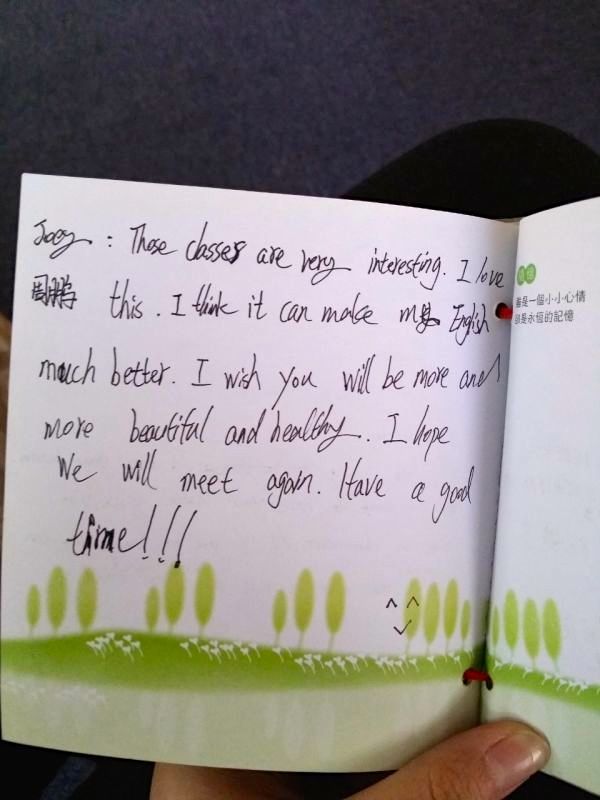 Joey : Those classes are very interesting. I love
周鹏 this. I think it can make my English
much better. I wish you will be more and
more beautiful and healthy. I hope
We will meet again. Have a good
time!!!
雖是一個小小心情
卻是永恆的記憶